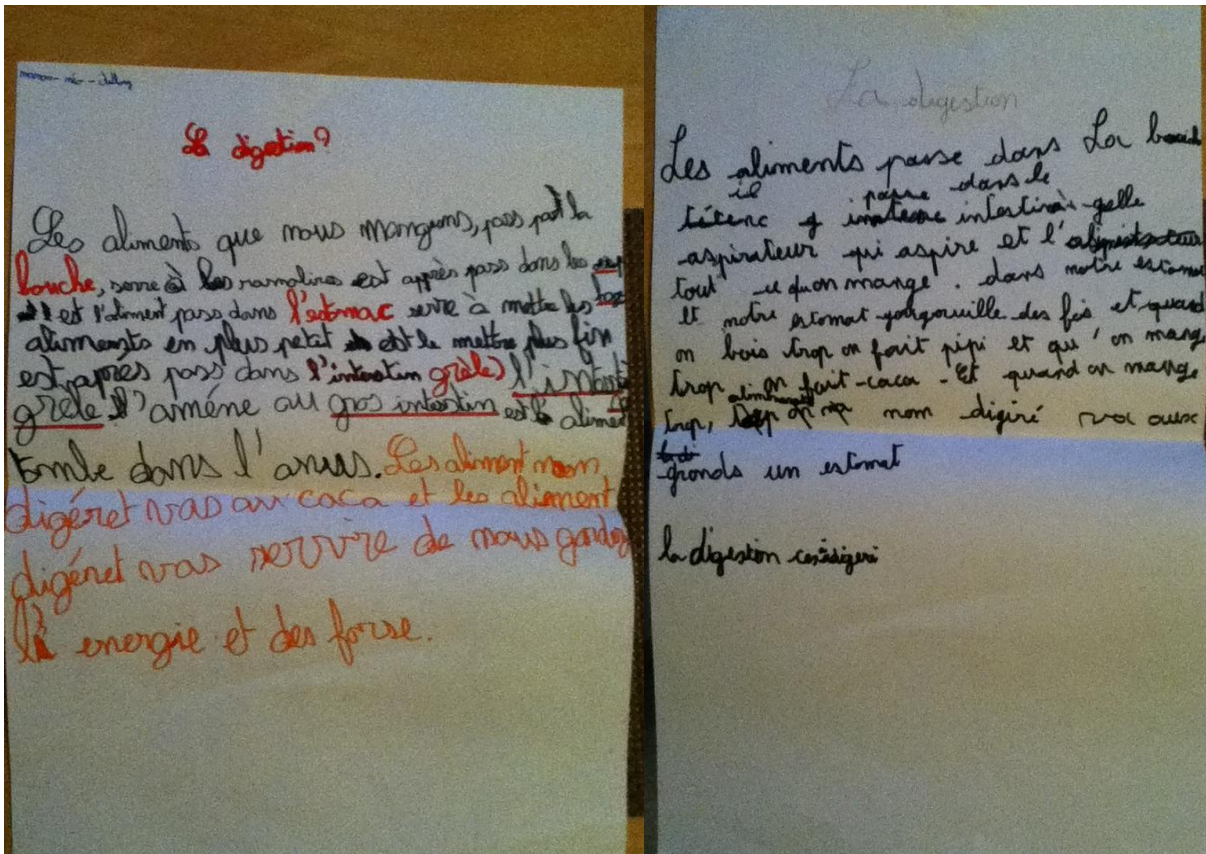 La digestion?
Les aliments que nous manguns, pass par la
bouche, serre à les ramolires est apprès pass dans les
est l'aliment pass dans l'estomac serre à mettre les
aliments en plus petit est le mettre plus fin
est après pass dans l'intestin grèle) l'intestin
grèle l'amène au gros intestin est aliment
tombe dans l'anus. Les aliment non
digéret vas au caca et les aliment
digéret vas servire de nous garder
energie et des forse.
La digestion
Les aliments passe dans La
il passe dans le
intestin gelle
aspirateur qui aspire et l'
tout ce qu'on mange. dans notre estomat
Et notre estomat gargouille des fois et quand
on bois trop on fait pipi et qu'on mange
trop on fait-caca - Et quand on mange
trop, non digiré va aux
gronds un estomat
la digestion ces digeri